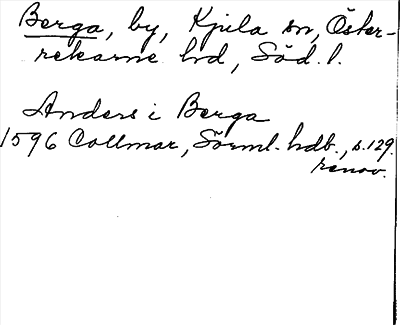 Berga, by, Kjula sn, Öster-
rekarne hd, Söd. l.
Anders i Berga
1596 Collmar, Sörml. hdb., s. 129.
renov.